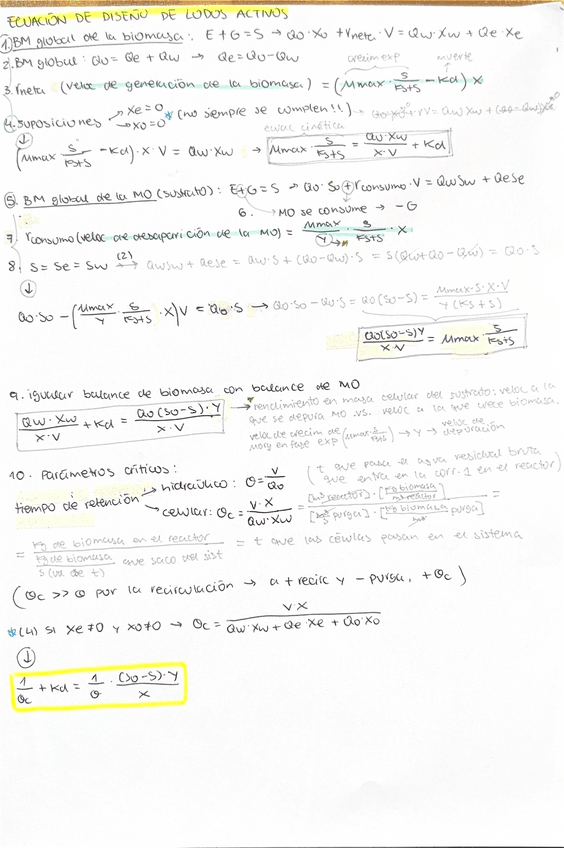 ECUACIÓN DE DISEÑO DE LODOS ACTIVOS
1. BM global de la biomasa: E + G = S → Q0·X0 + rneta·V = Qw·Xw + Qe·Xe
2. BM global: Q0 = Qe + Qw → Qe = Q0 - Qw
crecim exp muerte
3. rneta (veloc de generación de la biomasa) = (μmax · S/(Ks+S) - Kd) X
4. suposiciones → Xe = 0
→ X0 = 0 * (no siempre se cumplen!!)
ecuac cinética
(μmax · S/(Ks+S) - Kd) · X · V = Qw·Xw → μmax · S/(Ks+S) = Qw·Xw/(X·V) + Kd
5. BM global de la MO (sustrato): E + G = S → Q0·S0 + rconsumo·V = QwSw + QeSe
6. MO se consume → -G
7. rconsumo (veloc de desaparición de la MO) = μmax/Y · S/(Ks+S) · X
8. S = Se = Sw (2)→ QwSw + QeSe = Qw·S + (Q0 - Qw)·S = S(Qw + Q0 - Qw) = Q0·S
Q0·S0 - (μmax/Y · S/(Ks+S) · X)V = Q0·S → Q0·S0 - Q0·S = Q0(S0-S) = μmax·S·X·V/(Y(Ks+S))
Q0(S0-S)Y/(X·V) = μmax · S/(Ks+S)
9. igualar balance de biomasa con balance de MO
Qw·Xw/(X·V) + Kd = Q0(S0-S)·Y/(X·V) → rendimiento en masa celular del sustrato: veloc a la
que se depura MO vs. veloc a la que crece biomasa.
veloc de crecim de
en fase exp (μmax · S/(Ks+S)) → Y → veloc de depuración
10. Parámetros críticos:
tiempo de retención → hidráulico: θ = V/Q0 (t que pasa el agua residual bruta
que entra en la corr. 1 en el reactor)
→ celular: θc = V·X/(Qw·Xw) = [m³ reactor]·[kg biomasa/m³ reactor]/([m³/s purga]·[kg biomasa/m³ purga]) =
= kg de biomasa en el reactor/(kg de biomasa/s (ud de t) que saco del sist) = t que las células pasan en el sistema
(θc >> θ por la recirculación → a + recirc y - purga, + θc)
* (4) si Xe ≠ 0 y X0 ≠ 0 → θc = V·X/(Qw·Xw + Qe·Xe + Q0·X0)
1/θc + Kd = 1/θ · (S0-S)·Y/X